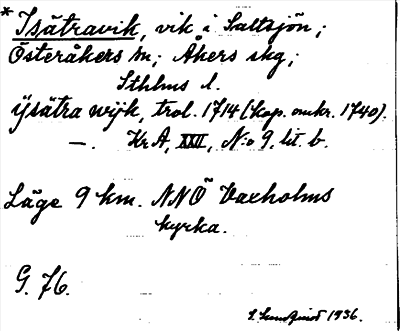 * Isätravik, vik i Saltsjön;
Österåkers sn; Åkers skg;
Sthlms l.
ÿsätra wijk, trol. 1714 (kop. omkr. 1740).
—. Kr A, XXII, N:o 9, lit. b.
Läge 9 km. NNÖ Vaxholms
kyrka.
G. 76.
S. Lundquist 1936.